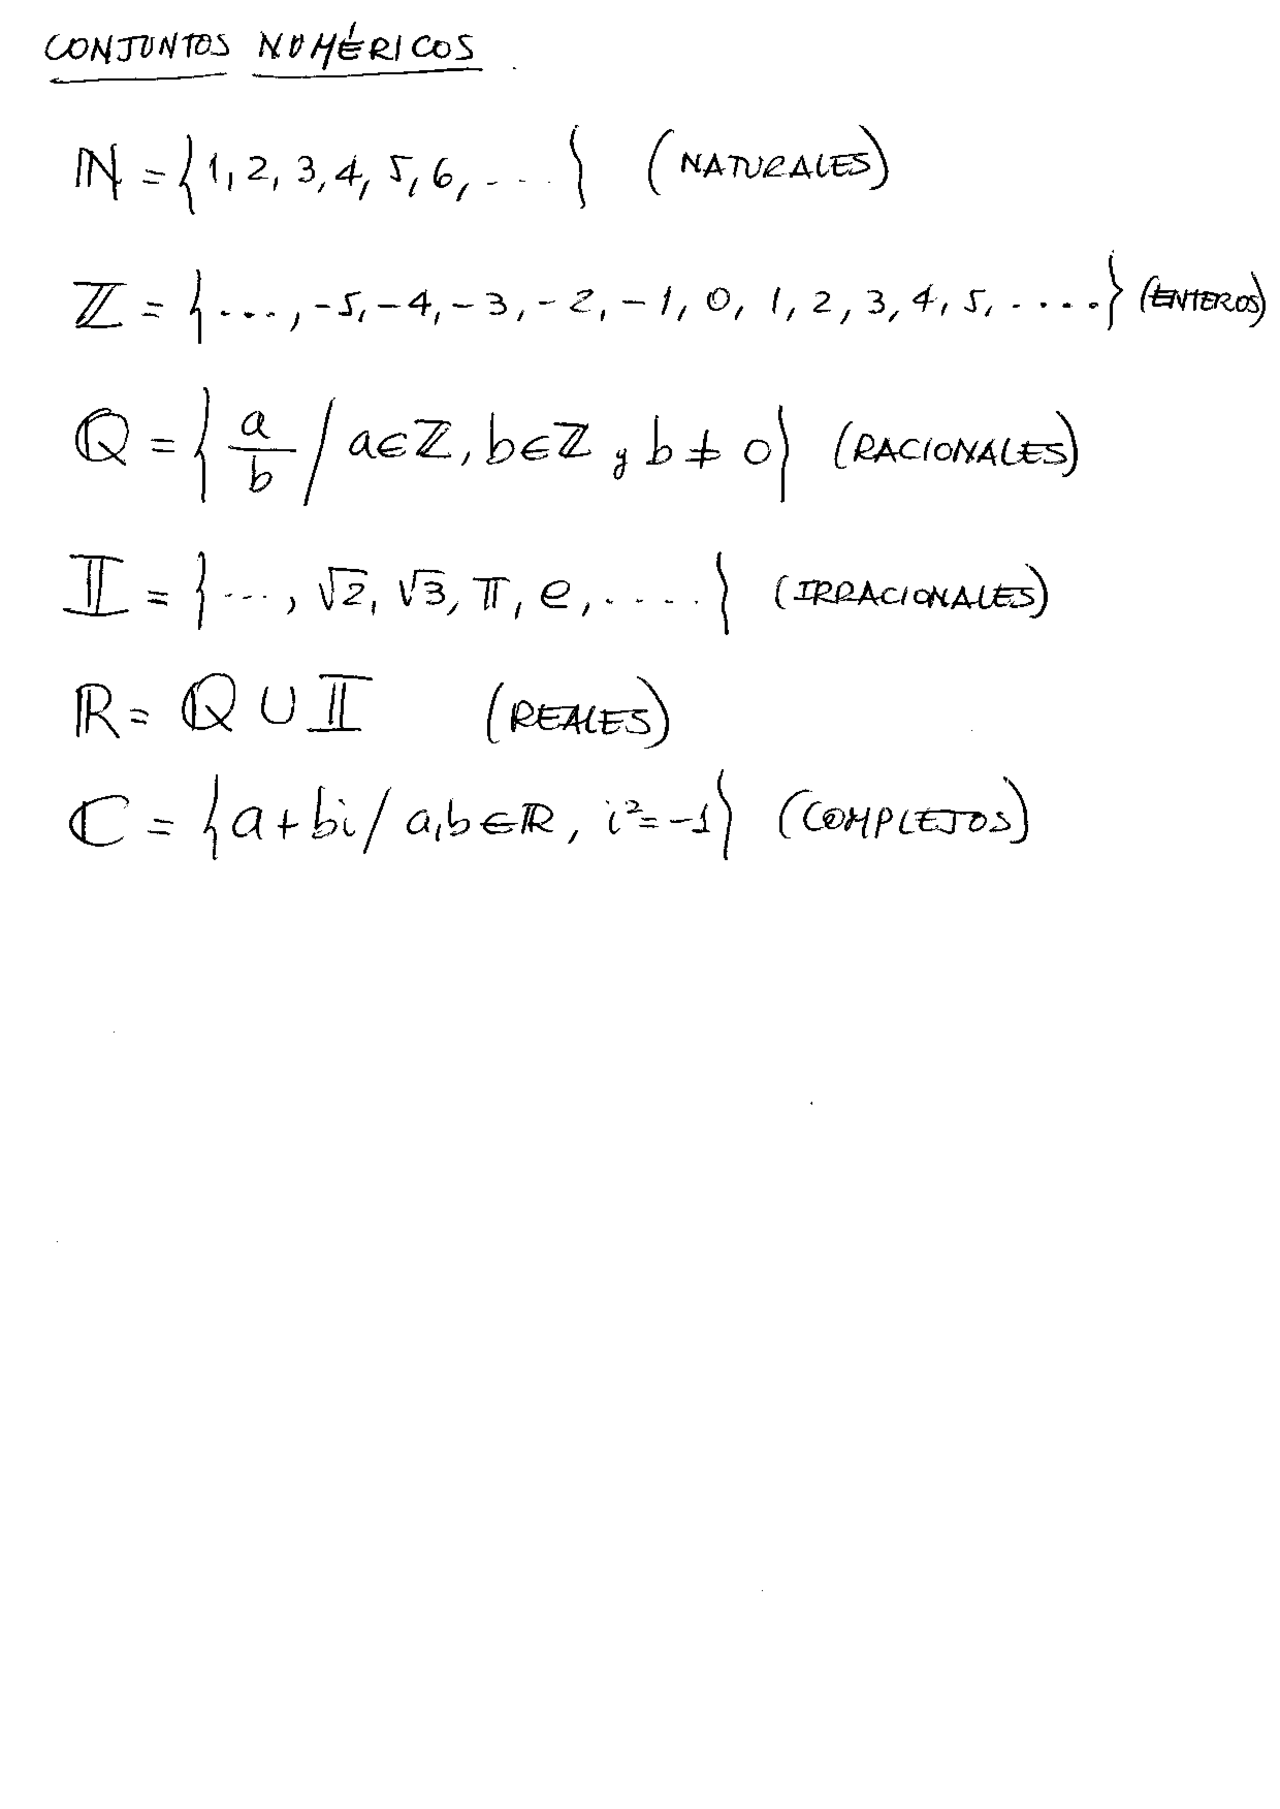 CONJUNTOS NUMÉRICOS
ℕ = {1, 2, 3, 4, 5, 6, ....} (NATURALES)
ℤ = {..., -5, -4, -3, -2, -1, 0, 1, 2, 3, 4, 5, ....} (ENTEROS)
ℚ = {a/b / a∈ℤ, b∈ℤ y b≠0} (RACIONALES)
𝕀 = {..., √2, √3, π, e, .....} (IRRACIONALES)
ℝ = ℚ ∪ 𝕀 (REALES)
ℂ = {a+bi / a,b∈ℝ, i²=-1} (COMPLEJOS)